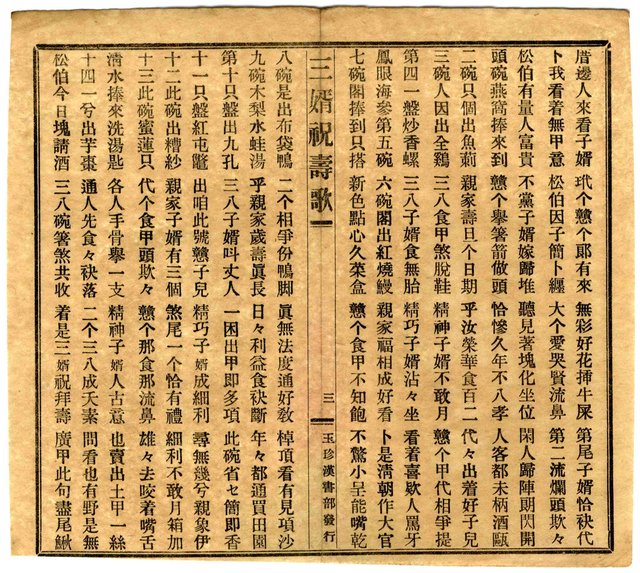 厝邊人來看子婿 玳个戇个郎有來 無彩好花揷牛屎 第尾子婿恰袂代
卜我看着無甲意 松伯因子簡卜纒 大个愛哭賢流鼻 第二流爛頭欺々
松伯有量人富貴 不黨子婿嫁歸堆 聽見著塊化坐位 閑人歸陣朗閃開
頭碗燕窩捧來到 戇个擧箸箭做頭 恰慘久年不八孝 人客都未柄酒甌
二碗只個出魚 親家壽旦个日期 乎汝榮華食百二 代々出着好子兒
三碗人因出全鷄 三八食甲煞脫鞋 精神子婿不敢月 戇个甲代相爭提
第四一盤炒香螺 三八子婿食無胎 精巧子婿沾々坐 看着喜歇人罵牙
鳳眼海參第五碗 六碗閣出紅燒鰻 親家福相成好看 卜是淸朝作大官
七碗閣捧到只搭 新色點心久菜盒 戇个食甲不知飽 不驚小呈能嘴乾
三婿祝壽歌 三 玉珍漢書部發行
八碗是出布袋鴨 二个相爭份鴨脚 眞無法度通好敎 棹頂看有見項沙
九碗木梨水蛙湯 乎親家歲壽眞長 日々利益食袂斷 年々都通買田園
第十只盤出九孔 三八子婿叫丈人 一困出甲即多項 此碗省セ簡即香
十一只盤紅屯鼈 出咱此號戇子兒 精巧子婿成細利 尋無幾兮親象伊
十二此碗出糟紗 親家子婿有三個 煞尾一个恰有禮 細利不敢月箱加
十三此碗蜜蓮只 代个食甲頭欺々 戇个那食那流鼻 雄々去咬着嘴舌
淸水捧來洗湯匙 各人手骨擧一支 精神子婿人古意 也賣出土甲一絲
十四一兮出芋棗 通人先食々袂落 二个三八成夭素 問看也有野是無
松伯今日塊請酒 三八碗箸煞共收 着是三婿祝拜壽 廣甲此句盡尾鰍